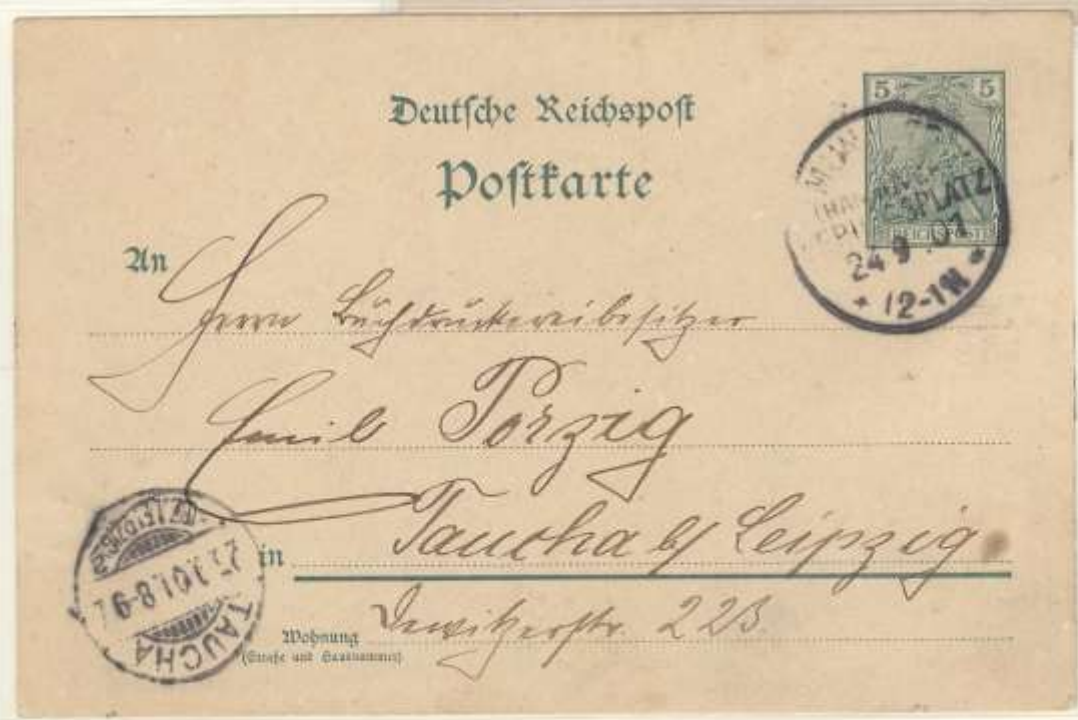 5 5
Deutsche Reichspost
Postkarte
REICHSPOST
PLATZ
24 9 01
* 12-1N *
An
Herrn Buchdruckereibesitzer
Emil Porzig
in Taucha b/ Leipzig
Dewitzerstr. 22B
Wohnung
(Straße und Hausnummer)
TAUCHA
.01.8-9